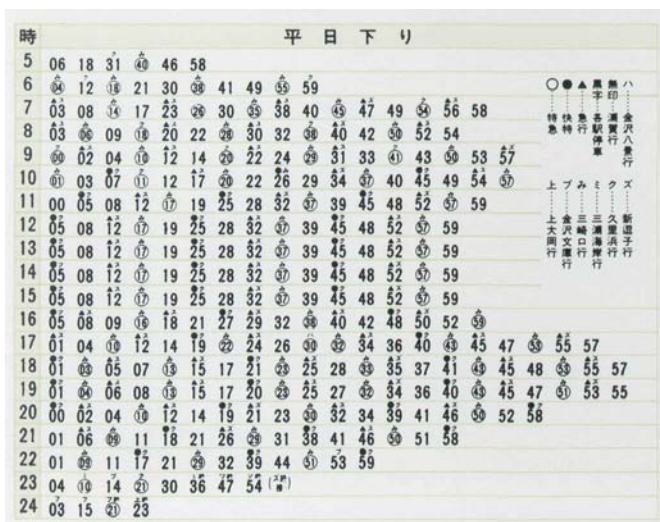 時 平日下り
5 06 18 31 40 46 58
6 04 12 18 21 30 38 41 49 55 59
7 03 08 14 17 23 26 30 35 38 40 45 47 49 54 56 58
8 03 06 09 18 20 22 28 30 32 38 40 42 50 52 54
9 00 02 04 10 12 14 20 22 24 29 31 33 41 43 50 53 57
10 01 03 07 11 12 17 20 22 26 29 34 37 40 45 49 54 57
11 00 05 08 12 17 19 25 28 32 37 39 45 48 52 57 59
12 05 08 12 17 19 25 28 32 37 39 45 48 52 57 59
13 05 08 12 17 19 25 28 32 37 39 45 48 52 57 59
14 05 08 12 17 19 25 28 32 37 39 45 48 52 57 59
15 05 08 12 17 19 25 28 32 37 39 45 48 52 57 59
16 05 08 09 16 18 21 27 29 32 38 40 42 48 50 52 59
17 01 04 10 12 14 19 22 24 26 30 32 34 36 40 43 45 47 53 55 57
18 01 03 05 07 13 15 17 21 23 25 28 33 35 37 41 43 45 48 53 55 57
19 01 04 06 08 13 15 17 20 23 25 27 32 34 36 40 43 45 47 51 53 55
20 00 02 04 10 12 14 19 21 23 30 32 34 39 41 46 50 52 58
21 01 06 09 11 18 21 26 29 31 38 41 46 50 51 58
22 01 09 11 17 21 29 32 39 44 51 53 59
23 04 10 14 21 30 36 47 54
24 03 15 21 23
ハ……金沢八景行 ズ……新逗子行
無印…浦賀行 ク……久里浜行
黒字…各駅停車 ミ……三浦海岸行
▲……急行 み……三崎口行
●……快特 ブ……金沢文庫行
○……特急 上……上大岡行